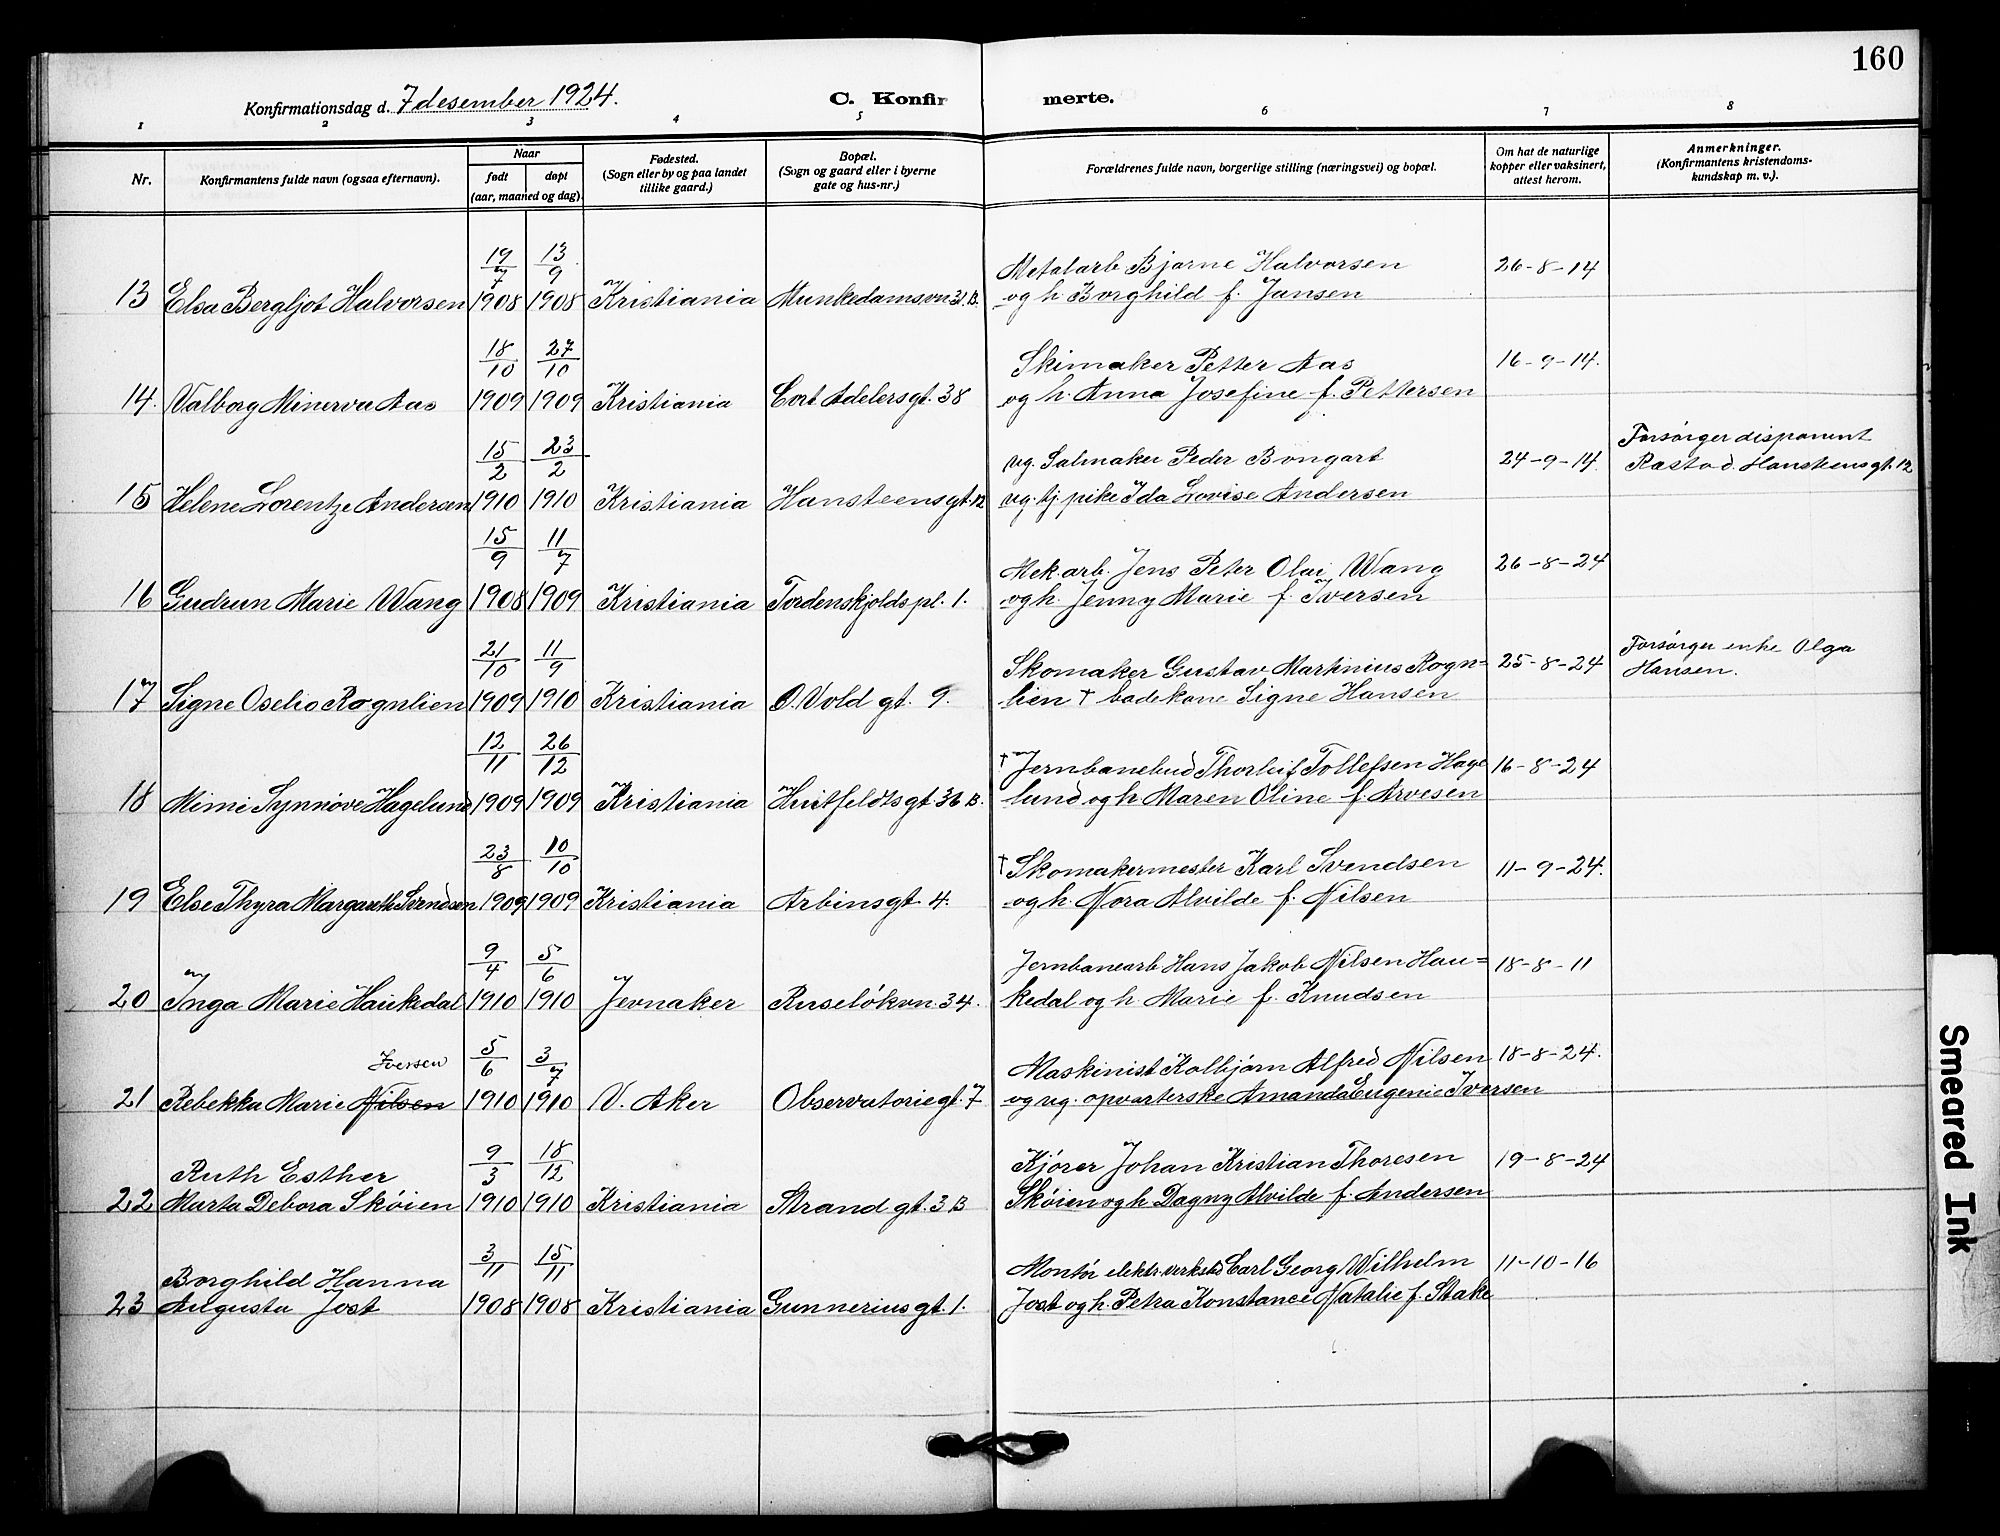 160
Konfirmationsdag d. 7 desember 1924.
C. Konfirmerte.
1 2 3 4 5 6 7 8
Nr.
Konfirmantens fulde navn (ogsaa efternavn).
Naar
født
døpt
(aar, maaned og dag).
Fødested.
(Sogn eller by og paa landet
tillike gaard.)
Bopæl.
(Sogn og gaard eller i byerne
gate og hus-nr.)
Forældrenes fulde navn, borgerlige stilling (næringsvei) og bopæl.
Om hat de naturlige
kopper eller vaksinert,
attest herom.
Anmerkninger.
(Konfirmantens kristendoms-
kundskap m. v.).
19/7 13/9 Metalarb Bjarne Halvorsen 26-8-14
13 Elsa Bergljot Halvorsen 1908 1908 Kristiania Munkedamsvn 31.B. og h Borghild f. Jansen
18/10 27/10 Skimaker Petter Aas 16-9-14.
14. Valborg Minerva Aas 1909 1909 Kristiania Cort Adelersgt. 38 og h. Anna Josefine f. Pettersen
15/2 23/2 ug. Salmaker Peder Bongart 24-9-14. Forsørger disponent
Rastad. Hansteensgt. 12
15 Helene Lorentze Andersen 1910 1910 Kristiania Hansteensgt. 12 ug. tj. pike Ida Lovise Andersen
15/9 11/7 Mek. arb. Jens Peter Olai Wang 26-8-24
16 Gudrun Marie Wang 1908 1909 Kristiania Tordenskjolds pl. 1. og h. Jenny Marie f. Iversen
21/10 11/9 Skomaker Gustav Martinius Rogn= 25-8-24 Forsørger enke Olga
Hansen.
17 Signe Oselio Rognlien 1909 1910 Kristiania O. Vold gt. 9. lien † badekone Signe Hansen
12/11 26/12 † Jernbanebud Thorleif Tollefsen Hage 16-8-24
18 Mimi Synnøve Hagelund 1909 1909 Kristiania Huitfeldtsgt. 36 B. lund og h Maren Oline f. Arvesen
23/8 10/10 † Skomakermester Karl Svendsen 11-9-24.
19 Else Thyra Margareth Svendsen 1909 1909 Kristiania Arbinsgt. 4. og h. Nora Alvilde f. Nilsen
9/4 5/6 Jernbanearb Hans Jakob Nilsen Hau= 18-8-11
20 Inga Marie Haukedal 1910 1910 Jevnaker Ruseløkvn. 34. kedal og h Marie f. Knudsen
Iversen 5/6 3/7 Maskinist Kolbjørn Alfred Nilsen 18-8-24.
21 Rebekka Marie Nilsen 1910 1910 V. Aker Observatoriegt. 7 og ug. opvarterske Amanda Eugenie Iversen
Ruth Esther 9/3 18/12 Kjører Johan Kristian Thoresen 19-8-24
22 Marta Debora Skøien 1910 1910 Kristiania Strand gt. 3 B Skøien og h Dagny Alvilde f. Andersen
Borghild Hanna 3/11 15/11 Montør elektr. verksted Carl Georg Wilhelm 11-10-16
23 Augusta Jost 1908 1908 Kristiania Gunneriusgt. 1. Jost og h. Petra Konstance Natalie f. Stake
Smeared Ink